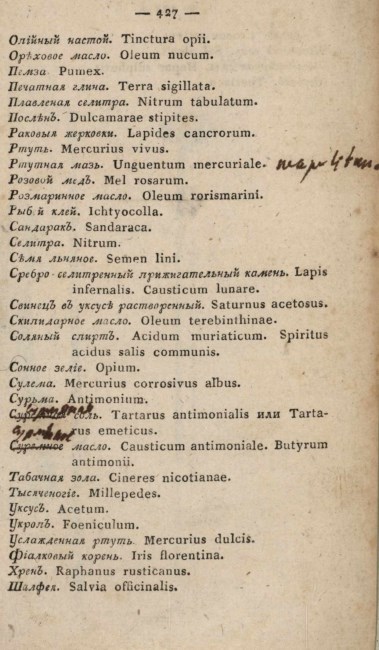 — 427 —
Опійный настой. Tinctura opii.
Орѣховое масло. Oleum nucum.
Пемза Pumex.
Печатная глина. Terra sigillata.
Плавленая селитра. Nitrum tabulatum.
Послѣнъ. Dulcamarae stipites.
Раковыя жерковки. Lapides cancrorum.
Ртуть. Mercurius vivus.
Ртутная мазь. Unguentum mercuriale.
Розовой медъ. Mel rosarum.
Розмаринное масло. Oleum rorismarini.
Рыбій клей. Ichtyocolla.
Сандаракъ. Sandaraca.
Селитра. Nitrum.
Сѣмя льняное. Semen lini.
Сребро-селитренный прижигательный камень. Lapis
infernalis. Causticum lunare.
Свинецъ въ уксусѣ растворенный. Saturnus acetosus.
Скипидарное масло. Oleum terebinthinae.
Соляный спиртъ. Acidum muriaticum. Spiritus
acidus salis communis.
Сонное зеліе. Opium.
Сулема. Mercurius corrosivus albus.
Сурьма. Antimonium.
соль. Tartarus antimonialis или Tarta-
rus emeticus.
Суремное масло. Causticum antimoniale. Butyrum
antimonii.
Табачная зола. Cineres nicotianae.
Тысяченогіе. Millepedes.
Уксусъ. Acetum.
Укропъ. Foeniculum.
Услажденная ртуть. Mercurius dulcis.
Фіалковый корень. Iris florentina.
Хренъ. Raphanus rusticanus.
Шалфея. Salvia officinalis.